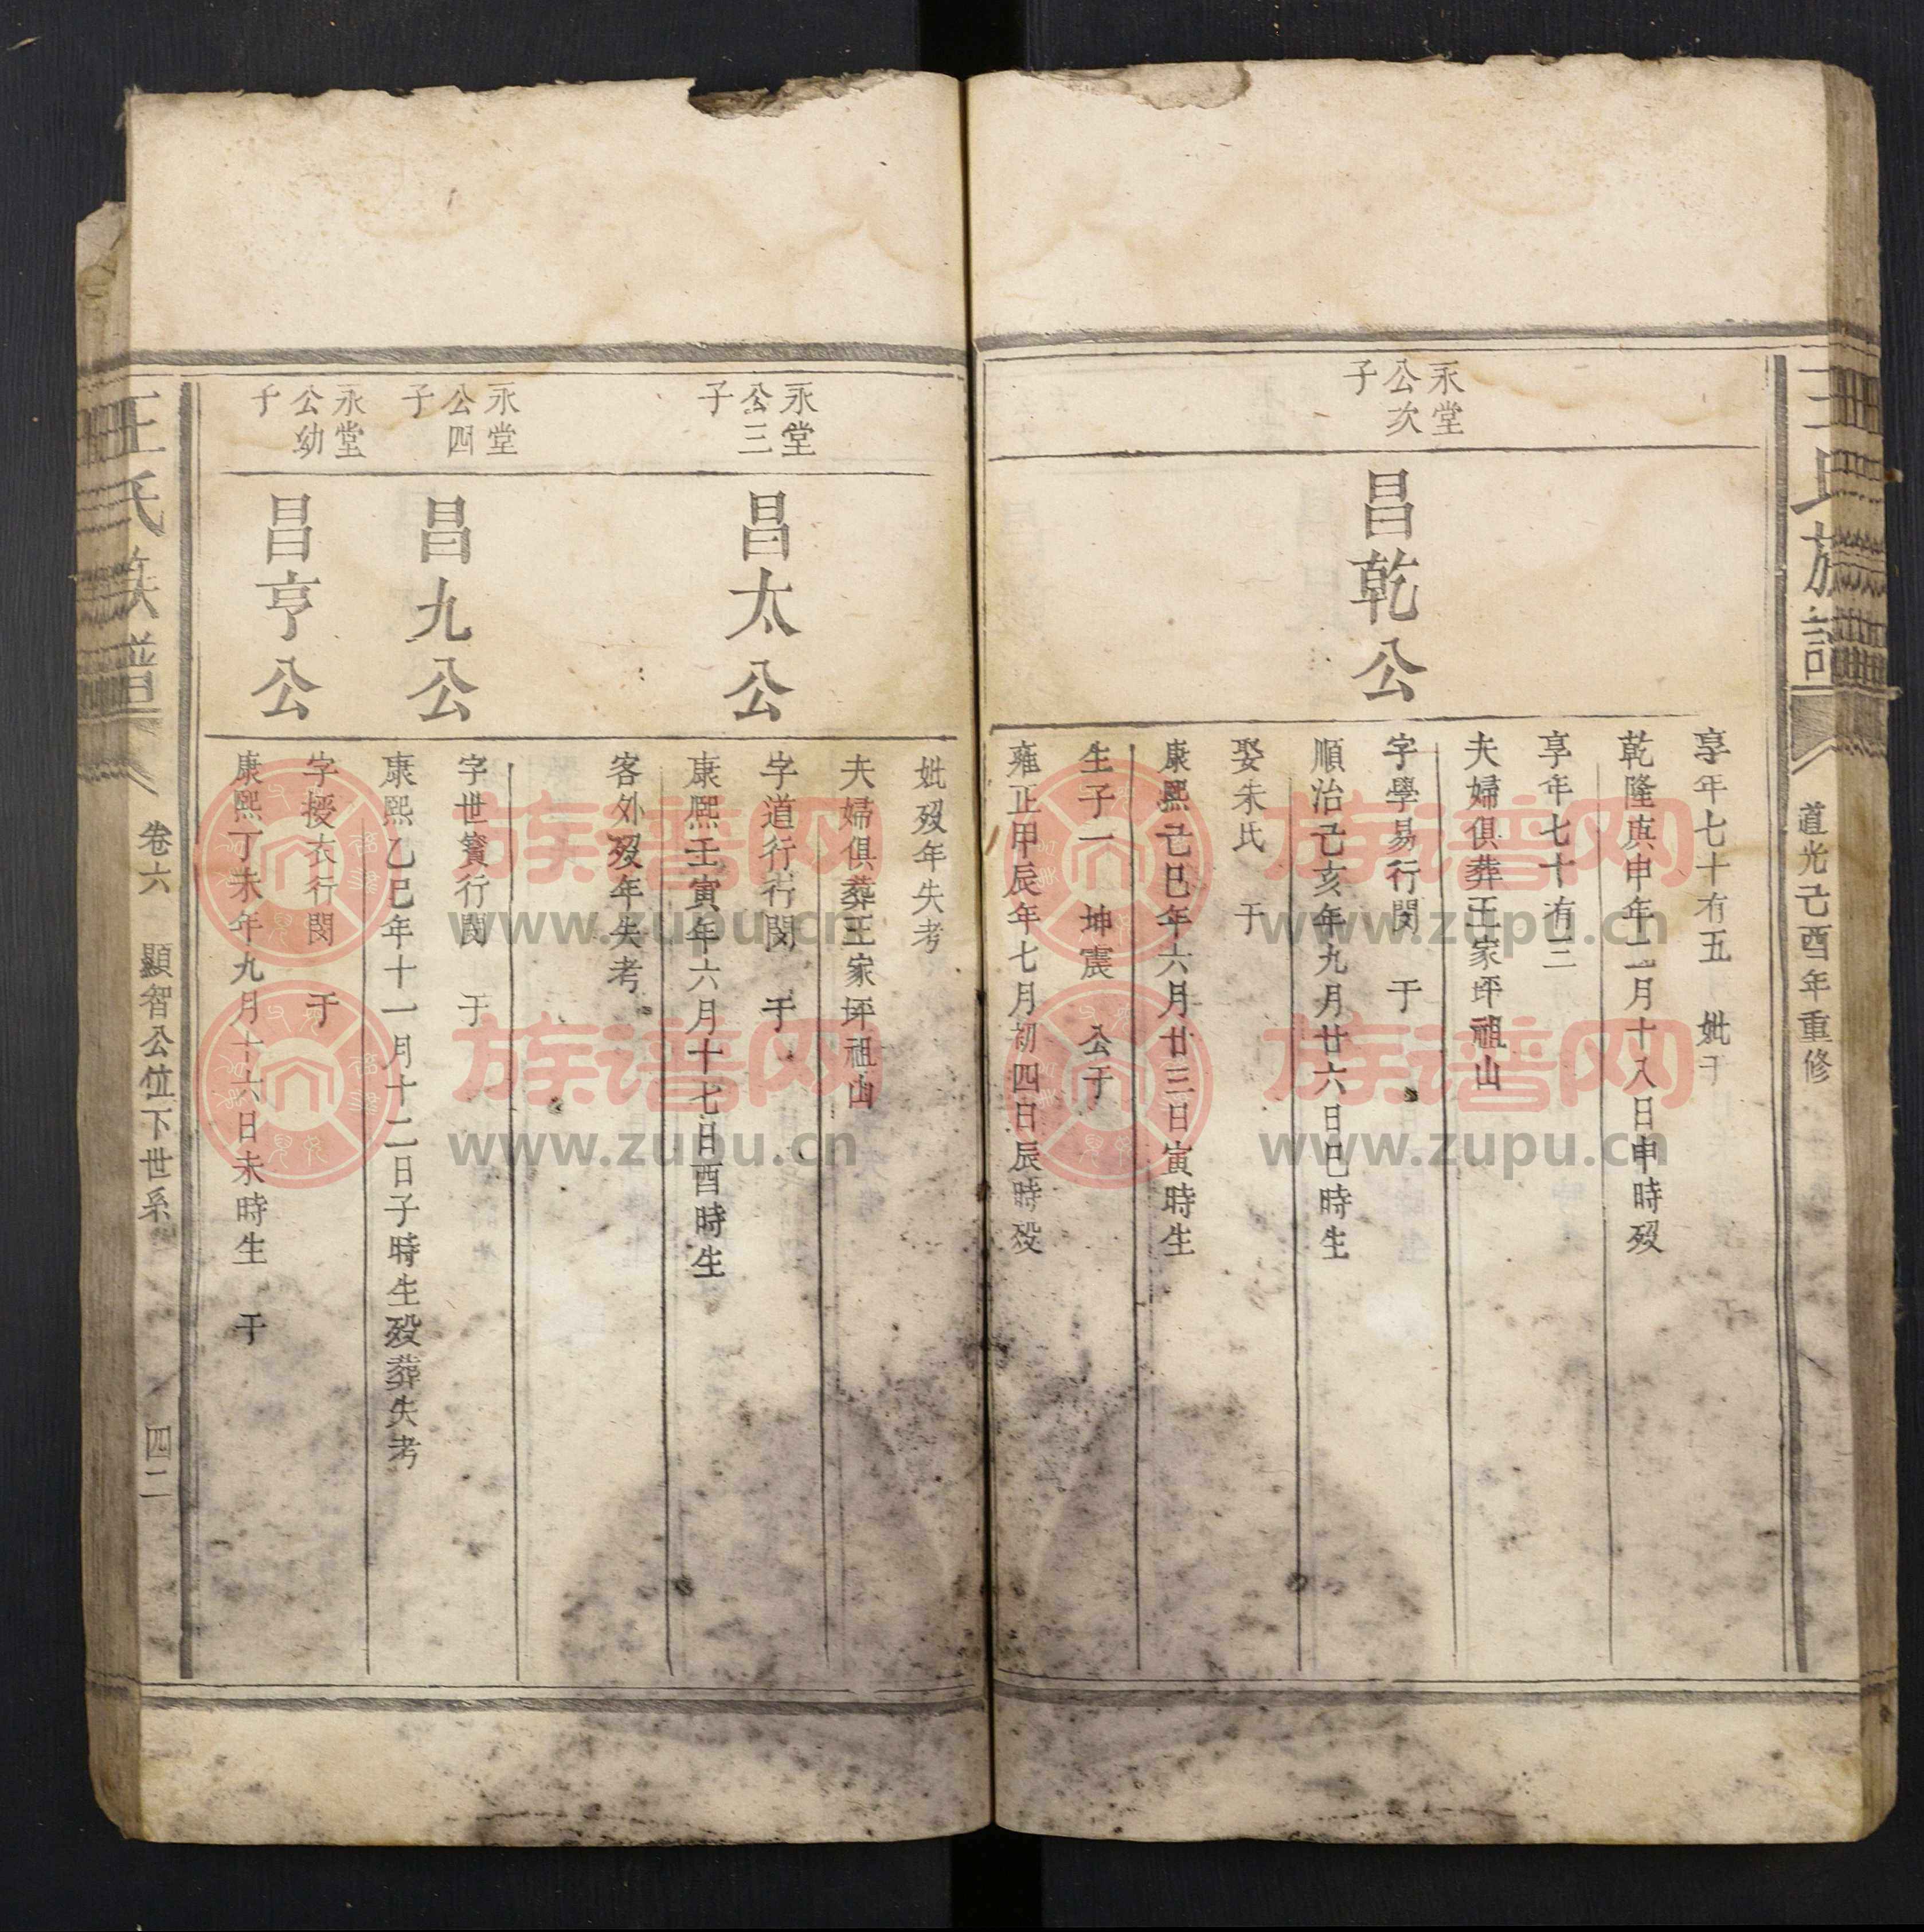 王氏族譜
道光己酉年重修
享年七十有五　妣于
乾隆庚申年二月十八日申時歿
享年七十有三
夫婦俱葬王家坪祖山
永堂
公次
子
昌乾公
字學易行閔　于
順治己亥年九月廿六日巳時生
娶朱氏　于
康熙己巳年六月廿三日寅時生
生子一　坤震　公于
雍正甲辰年七月初四日辰時殁
妣歿年失考
夫婦俱葬王家坪祖山
永堂
公三
子
昌太公
字道行行閔　于
康熙壬寅年六月十七日酉時生
客外歿年失考
永堂
公四
子
昌九公
字世賓行閔　于
康熙乙巳年十一月十二日子時生歿葬失考
永堂
公幼
子
昌亨公
字授衣行閔　于
康熙丁未年九月十六日未時生　于
王氏族譜
卷六　顯智公位下世系　四二
族谱网
www.zupu.cn
族谱网
www.zupu.cn
族谱网
www.zupu.cn
族谱网
www.zupu.cn